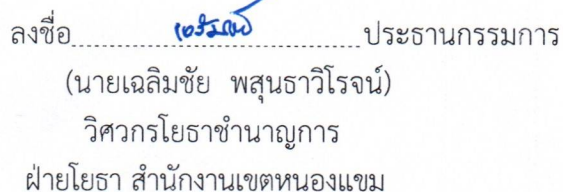 ลงชื่อ.......................................ประธานกรรมการ
(นายเฉลิมชัย พสุนธาวิโรจน์)
วิศวกรโยธาชำนาญการ
ฝ่ายโยธา สำนักงานเขตหนองแขม